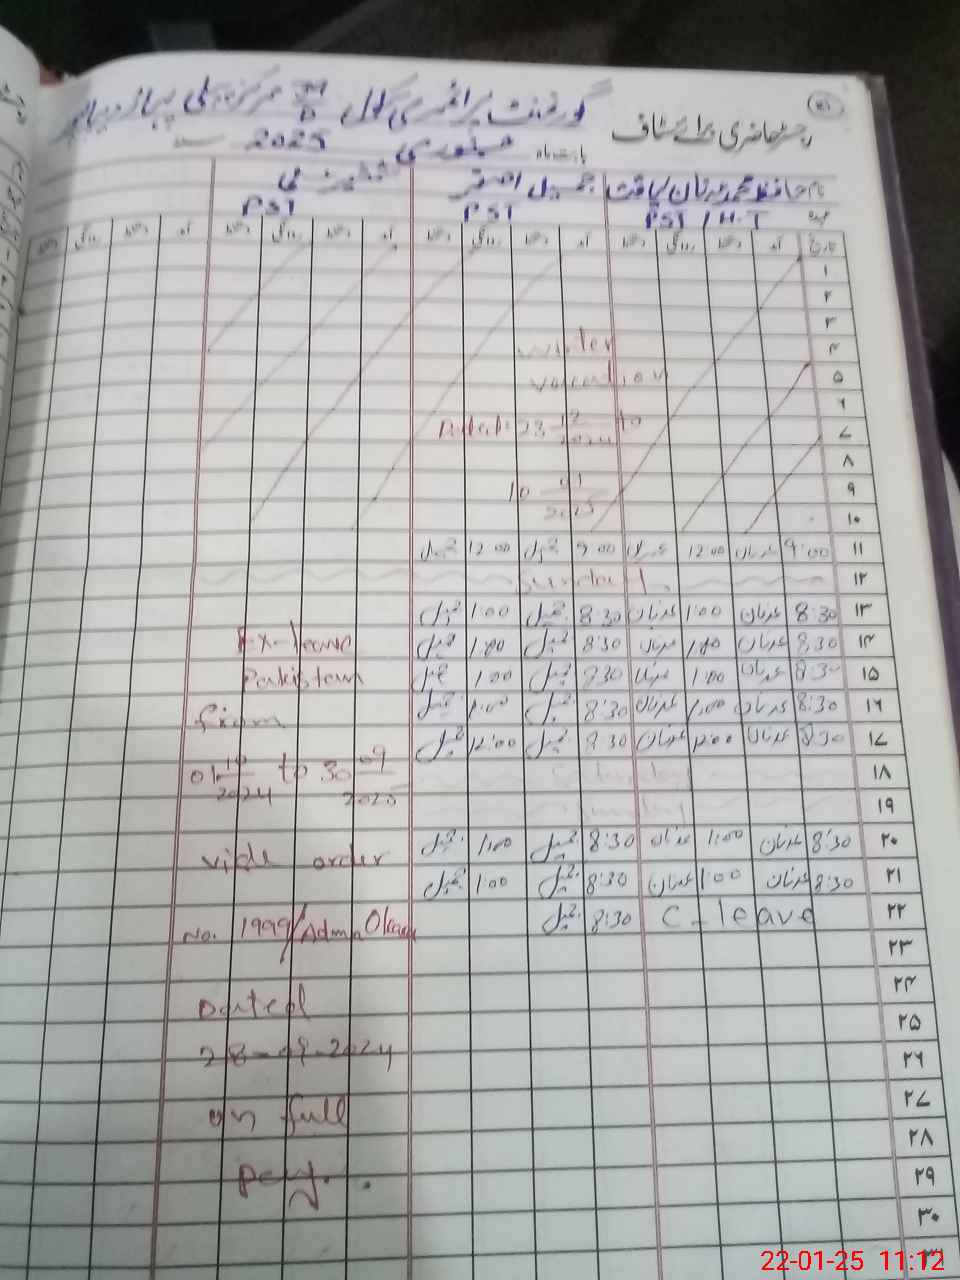 ۵۱
رجسٹر حاضری برائے سٹاف
گورنمنٹ پرائمری سکول مرکز پہاڑ
بابت ماہ جنوری 2025
نام حافظ محمد عدنان لیاقت جمیل اصغر
عہدہ PST / H.T PST PST
تاریخ آمد دستخط روانگی دستخط آمد دستخط روانگی دستخط آمد دستخط روانگی دستخط آمد دستخط روانگی دستخط
۱
۲
۳
۴ winter
۵ vacation
۶
۷ Dated: 23 12/2024 to
۸
۹ 10 01/2025
۱۰
۱۱ 9:00 عدنان 12:00 عدنان 9:00 جمیل 12:00 جمیل
۱۲ Sunday
۱۳ 8:30 عدنان 1:00 عدنان 8:30 جمیل 1:00 جمیل
۱۴ 8:30 عدنان 1:00 عدنان 8:30 جمیل 1:00 جمیل
۱۵ 8:30 عدنان 1:00 عدنان 8:30 جمیل 1:00 جمیل
۱۶ 8:30 عدنان 1:00 عدنان 8:30 جمیل 1:00 جمیل
۱۷ 8:30 عدنان 12:00 عدنان 8:30 جمیل 12:00 جمیل
۱۸ Saturday
۱۹ Sunday
۲۰ 8:30 عدنان 1:00 عدنان 8:30 جمیل 1:00 جمیل
۲۱ 8:30 عدنان 1:00 عدنان 8:30 جمیل 1:00 جمیل
۲۲ C-leave 8:30 جمیل
۲۳
۲۴
۲۵
۲۶
۲۷
۲۸
۲۹
۳۰
۳۱
Ex-leave
Pakistan
from
01 10/2024 to 30 09/2025
vide order
No. 1999/Admn Okara
Dated
28-09-2024
on full
pay.
22-01-25 11:12